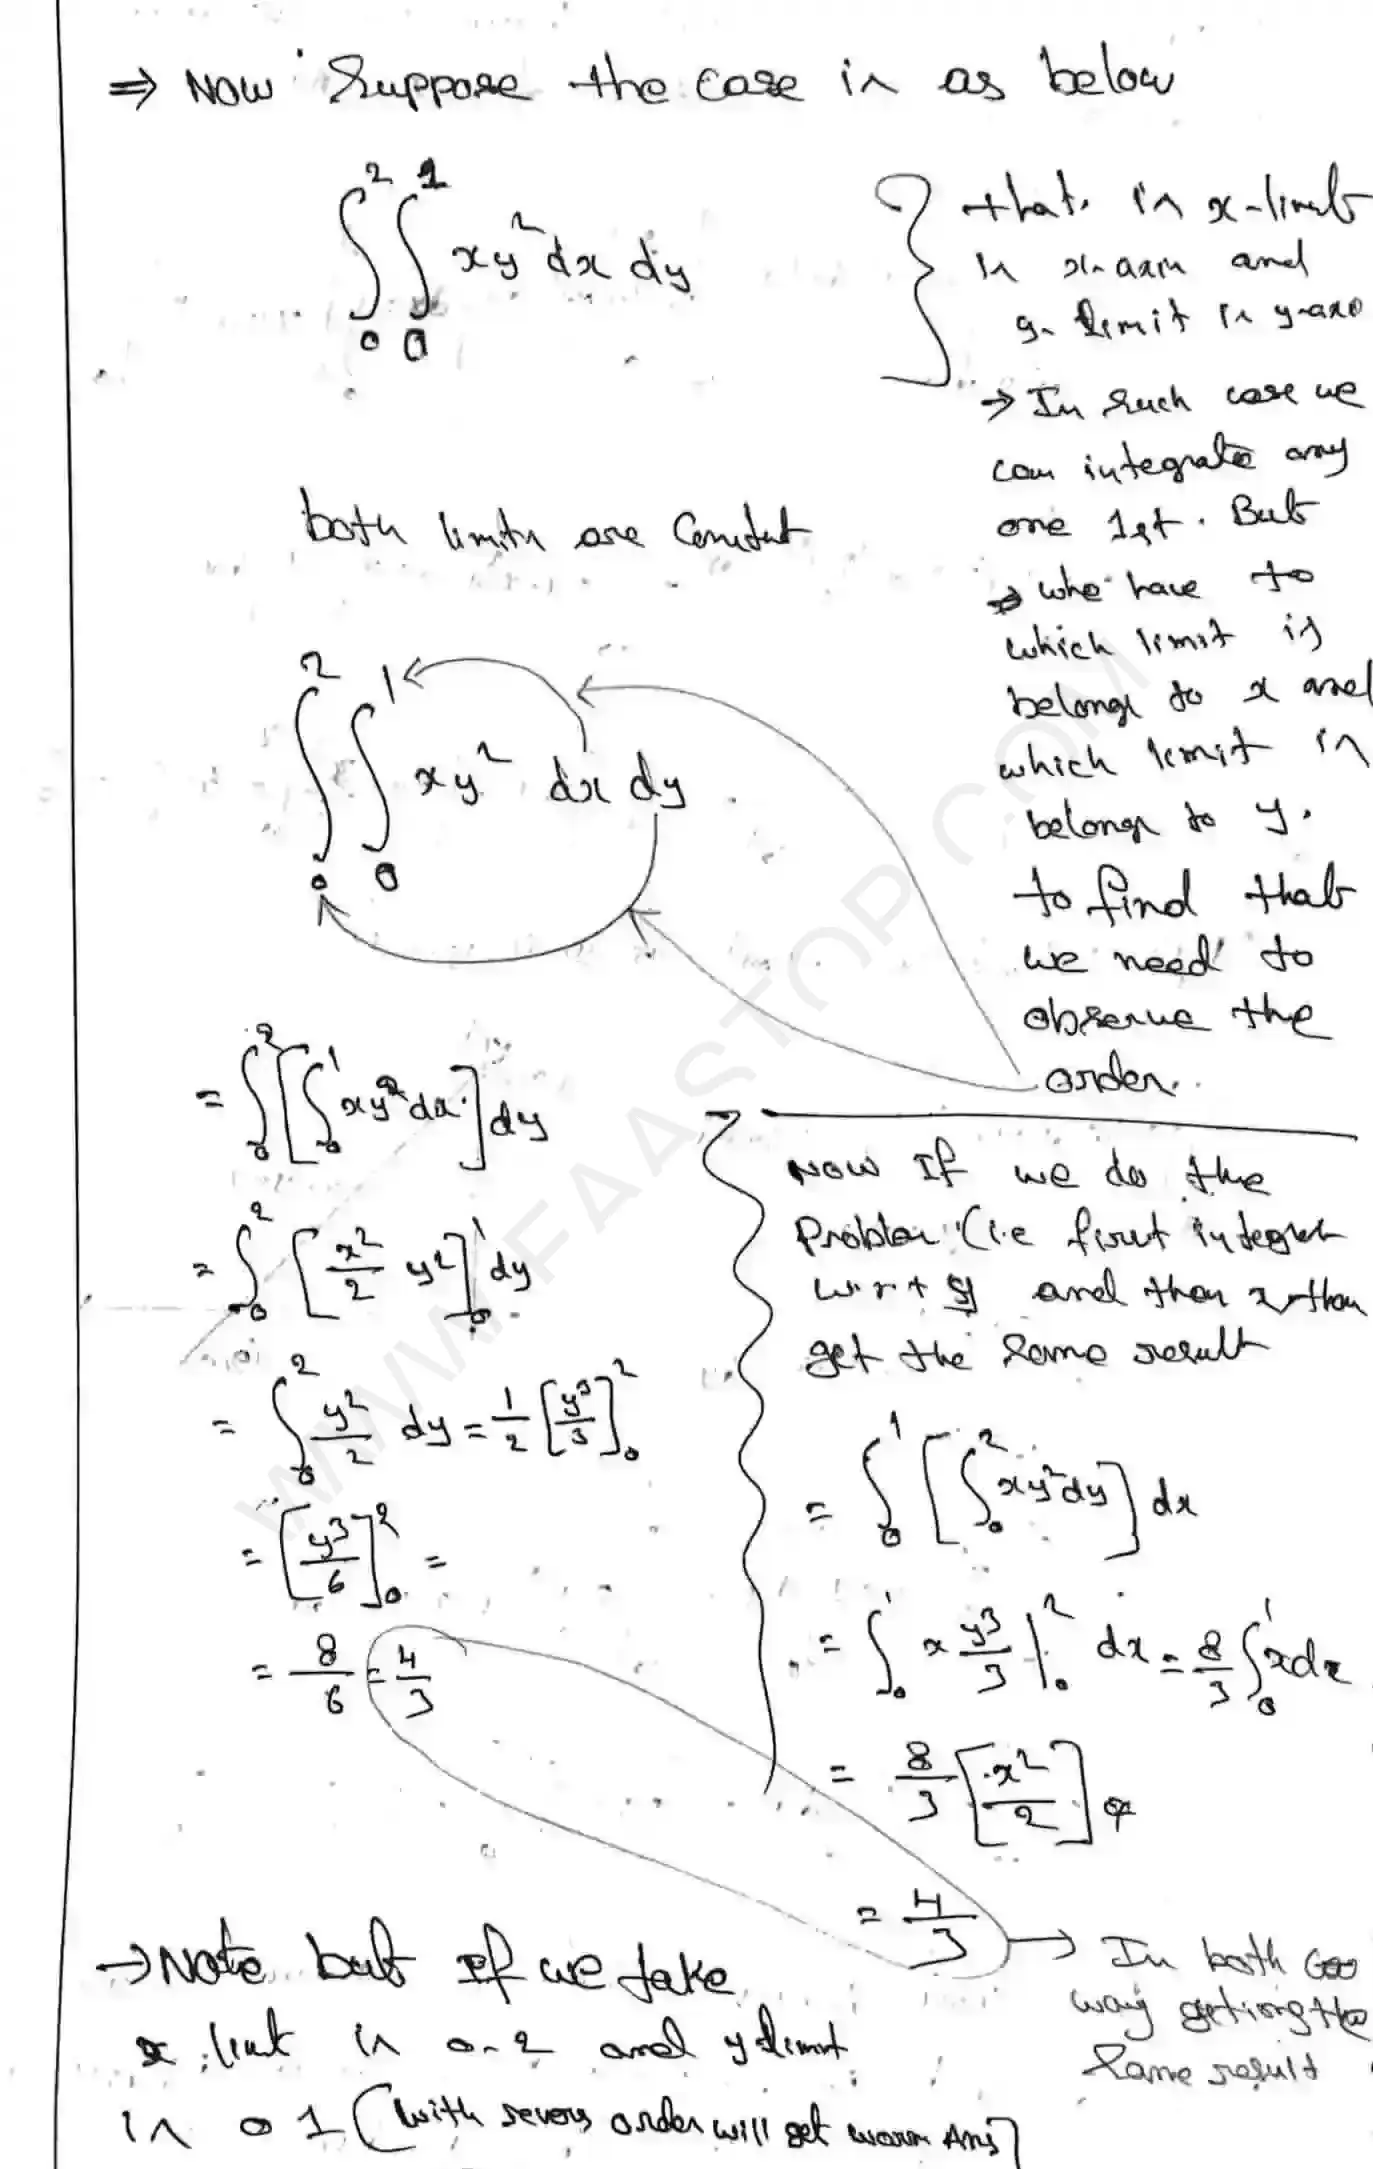 ⇒ Now Suppose the case in as below
∫₀² ∫₀¹ xy² dx dy
that in x-limit
in x-axis and
y-limit in y-axis
→ In such case we
can integrate any
one 1st. But
→ who have to
which limit is
belongs to x and
which limit in
belongs to y.
to find that
we need to
observe the
order.
both limits are Constant
∫₀² ∫₀¹ xy² dx dy
= ∫₀² [∫₀¹ xy² dx] dy
= ∫₀² [x²/2 y²]₀¹ dy
= ∫₀² y²/2 dy = 1/2 [y³/3]₀²
= [y³/6]₀² =
= 8/6 = 4/3
Now If we do the
Problem (i.e first integrat
w.r.t y and then x then
get the same result
= ∫₀¹ [∫₀² xy² dy] dx
= ∫₀¹ x y³/3 |₀² dx = 8/3 ∫₀¹ x dx
= 8/3 [x²/2]
= 4/3
→ In both
way getting the
Same result
→ Note but If we take
x limit in 0-2 and y limit
in 0 1 (with revers order will get worn Ans]
WWW.FAASTOP.COM